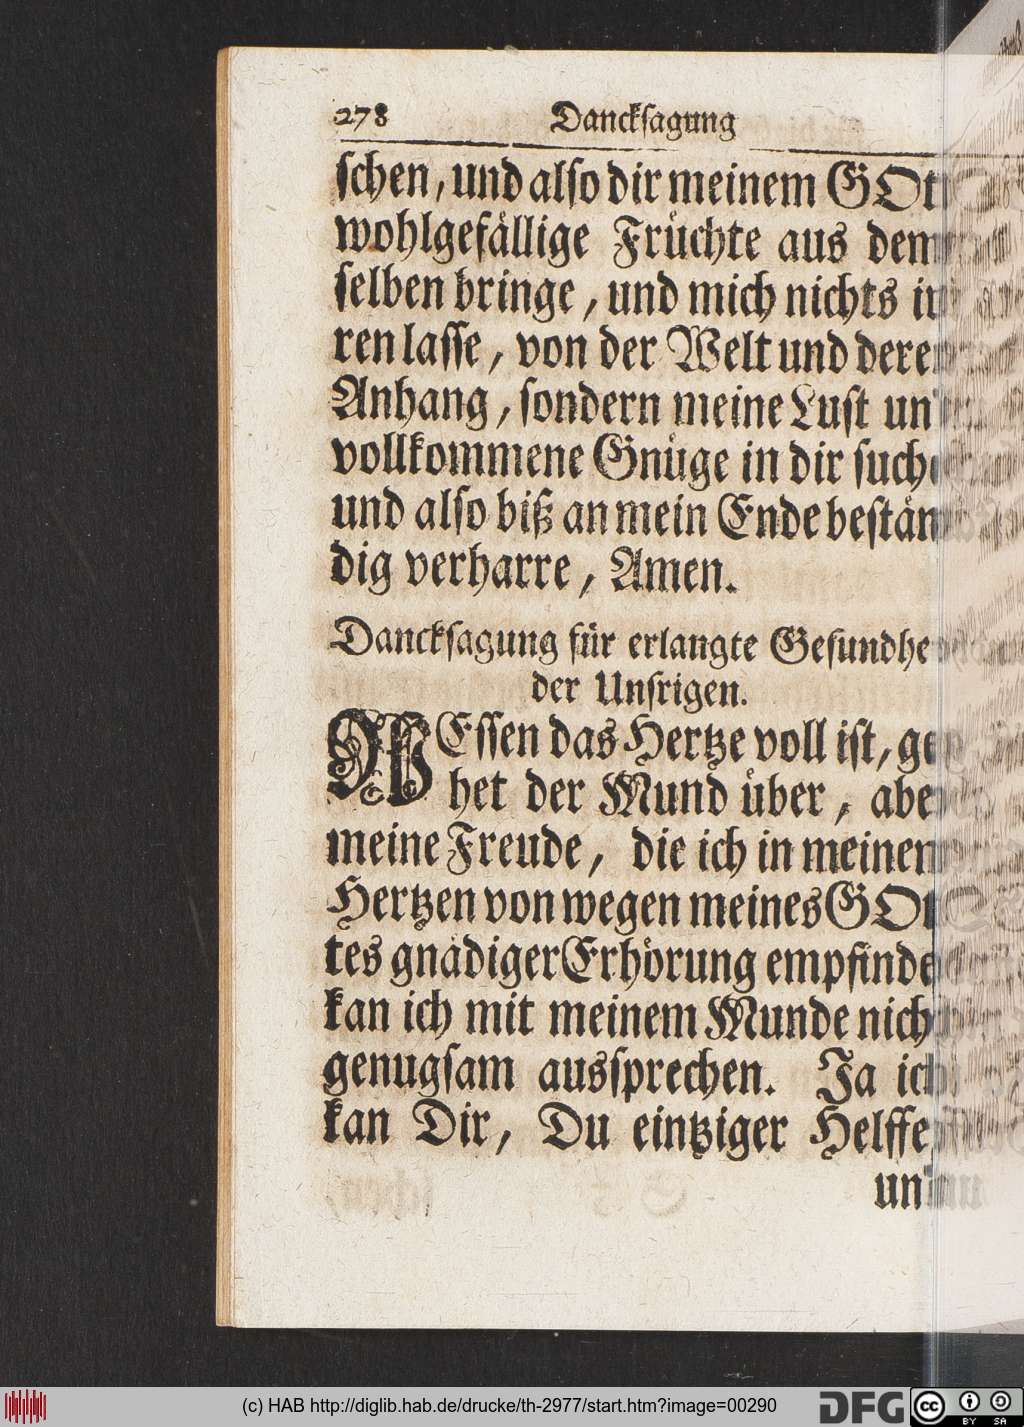 278 Danckſagung
ſchen, und alſo dir meinem GOt
wohlgefällige Früchte aus dem
ſelben bringe, und mich nichts ir
ren laſſe, von der Welt und deren
Anhang, ſondern meine Luſt un
vollkommene Gnüge in dir ſuche
und alſo biß an mein Ende beſtän
dig verharre, Amen.
Danckſagung für erlangte Geſundhe
der Unſrigen.
WEſſen das Hertze voll iſt, ge
het der Mund über, aber
meine Freude, die ich in meinem
Hertzen von wegen meines GOt
tes gnädiger Erhörung empfinde
kan ich mit meinem Munde nich
genugſam ausſprechen. Ja ich
kan Dir, Du eintziger Helffe
un
(c) HAB http://diglib.hab.de/drucke/th-2977/start.htm?image=00290
DFG
cc BY SA